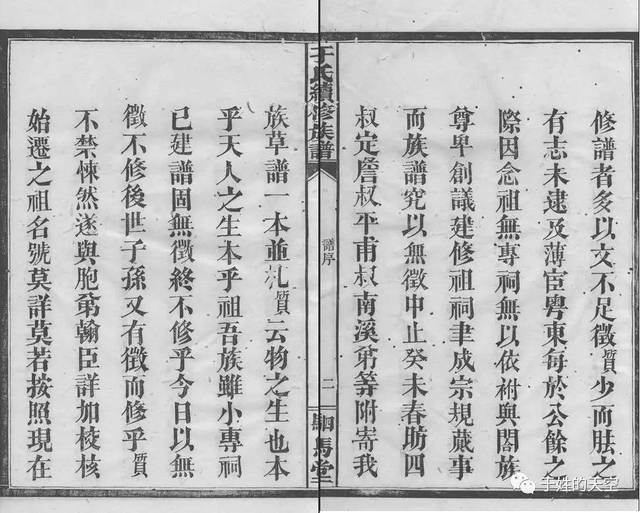 修譜者多以文不足徵質少而胠之
有志未逮及薄宦粵東每於公餘之
際因念祖無專祠無以依祔與閤族
尊卑創議建修祖祠聿成宗規蕆事
而族譜究以無徵中止癸未春昉四
叔定詹叔平甫叔南溪弟等附寄我
于氏續修族譜
譜序
二
駟馬堂
族草譜一本並札質云物之生也本
乎天人之生本乎祖吾族雖小專祠
已建譜固無徵終不修乎今日以無
徵不修後世子孫又有徵而修乎質
不禁悚然遂與胞弟翰臣詳加校核
始遷之祖名號莫詳莫若按照現在
于姓的天空